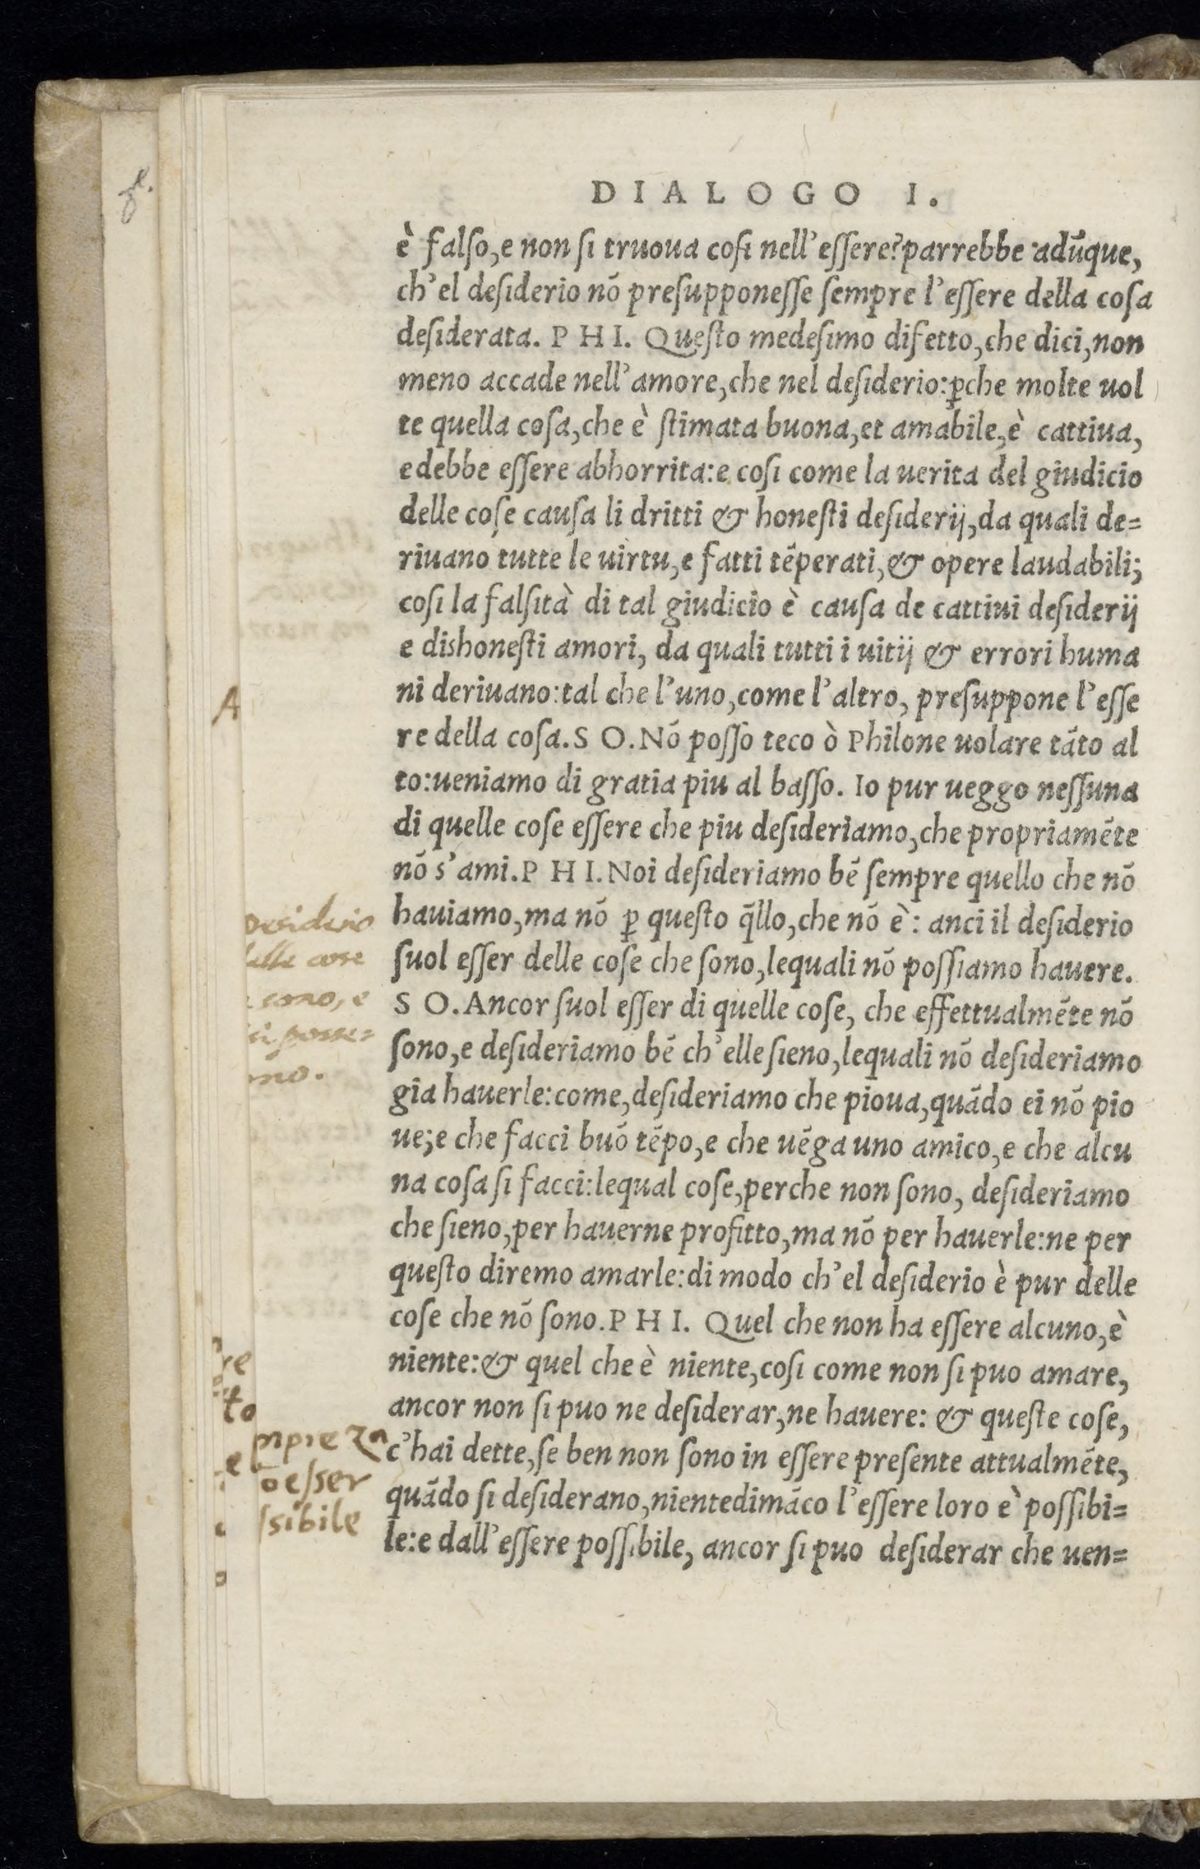 DIALOGO I.
è falso,e non si truoua cosi nell'essere?parrebbe adūque,
ch'el desiderio nō presupponesse sempre l'essere della cosa
desiderata. P H I. Questo medesimo difetto,che dici,non
meno accade nell'amore,che nel desiderio:ꝑche molte uol
te quella cosa,che è stimata buona,et amabile,è cattiua,
e debbe essere abhorrita:e cosi come la uerita del giudicio
delle cose causa li dritti & honesti desiderij,da quali de=
riuano tutte le uirtu,e fatti tēperati,& opere laudabili;
cosi la falsità di tal giudicio è causa de cattiui desiderij
e dishonesti amori, da quali tutti i uitij & errori huma
ni deriuano:tal che l'uno,come l'altro, presuppone l'esse
re della cosa.S O.Nō posso teco ò Philone uolare tāto al
to:ueniamo di gratia piu al basso. Io pur ueggo nessuna
di quelle cose essere che piu desideriamo,che propriamēte
nō s'ami.P H I.Noi desideriamo bē sempre quello che nō
hauiamo,ma nō ꝑ questo q̄llo,che nō è: anci il desiderio
suol esser delle cose che sono,lequali nō possiamo hauere.
S O.Ancor suol esser di quelle cose, che effettualmēte nō
sono,e desideriamo bē ch'elle sieno,lequali nō desideriamo
gia hauerle:come,desideriamo che pioua,quādo ei nō pio
ue;e che facci buō tēpo,e che uēga uno amico,e che alcu
na cosa si facci:lequal cose,perche non sono, desideriamo
che sieno,per hauerne profitto,ma nō per hauerle:ne per
questo diremo amarle:di modo ch'el desiderio è pur delle
cose che nō sono.P H I. Quel che non ha essere alcuno,è
niente:& quel che è niente,cosi come non si puo amare,
ancor non si puo ne desiderar,ne hauere: & queste cose,
c'hai dette,se ben non sono in essere presente attualmēte,
quādo si desiderano,nientedimāco l'essere loro è possibi=
le:e dall'essere possibile, ancor si puo desiderar che uen=
A
Desiderio
delle cose
sono, e
mo.
re
to
e
esser
ssibile